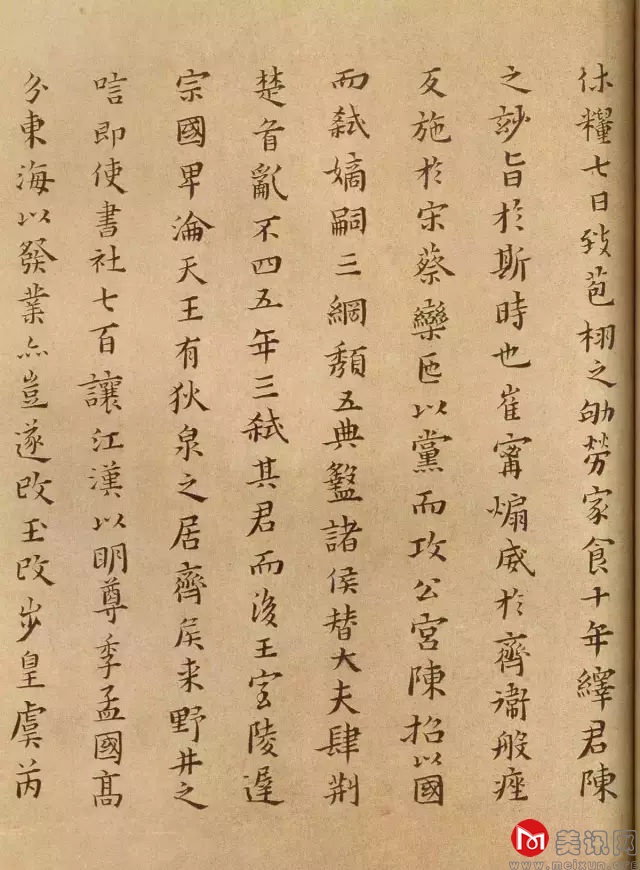 休糧七日致苞栩之劬勞家食十年繹君陳
之訬旨於斯時也崔甯煽威於齊衛般痤
反施於宋蔡欒匜以黨而攻公宮陳招以國
而弒嫡嗣三綱頹五典盭諸侯替大夫肆荊
楚首亂不四五年三弒其君而後王室陵遲
宗國卑淪天王有狄泉之居齊侯来野井之
唁即使書社七百讓江漢以明尊季孟國高
分東海以發業亦豈遂改玉改步皇虞芮
美讯网
www.meixun.org